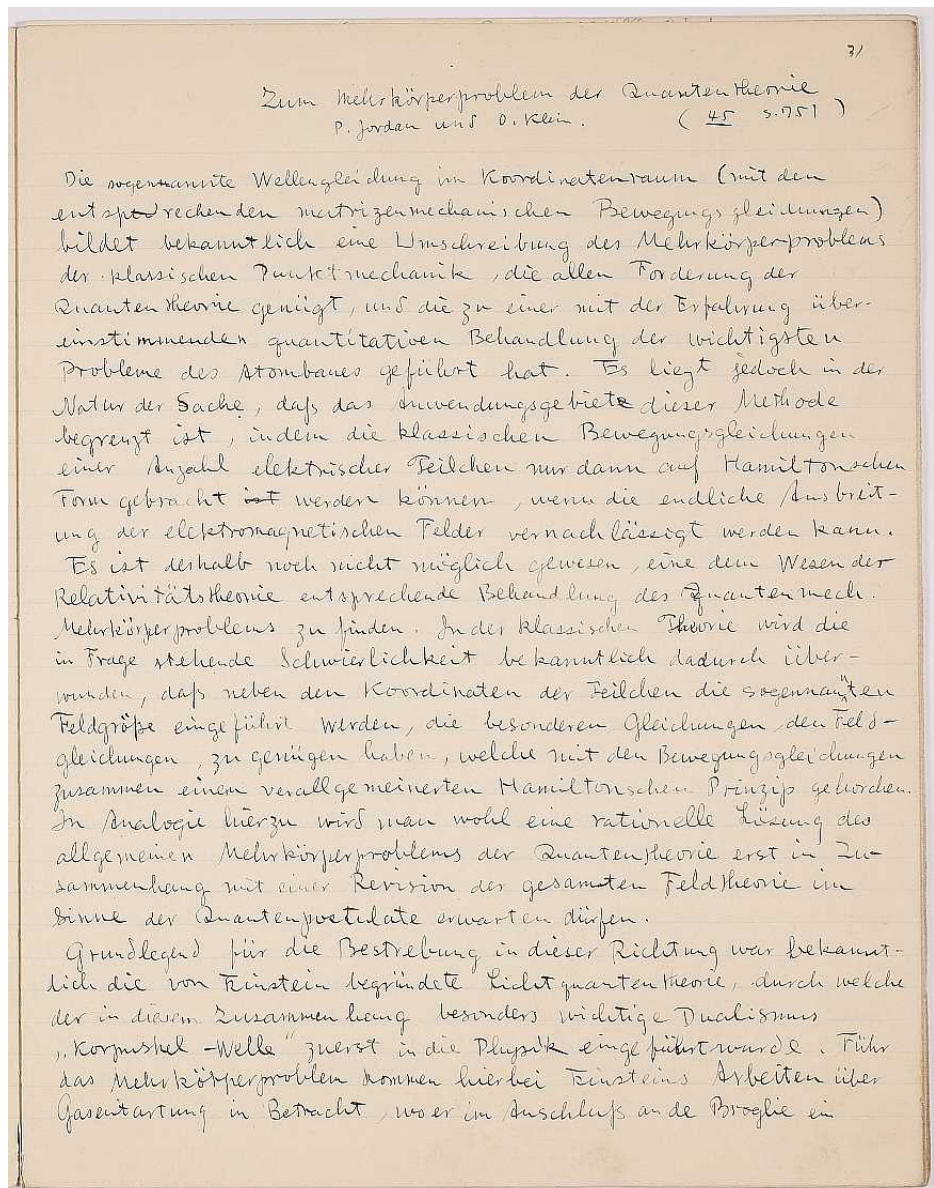 31
Zum Mehrkörperproblem der Quantentheorie
P. Jordan und O. Klein. ( 45 S.751 )
Die sogennannte Wellengleichung im Koordinatenraum (mit den
entsprechenden matrizenmechanischen Bewegungsgleichungen)
bildet bekanntlich eine Umschreibung des Mehrkörperproblems
der klassischen Punktmechanik, die allen Forderung der
Quantentheorie genügt, und die zu einer mit der Erfahrung über-
einstimmenden quantitativen Behandlung der wichtigsten
Probleme des Atombaues geführt hat. Es liegt jedoch in der
Natur der Sache, daß das Anwendungsgebiete dieser Methode
begrenzt ist, indem die klassischen Bewegungsgleichungen
einer Anzahl elektrischer Teilchen nur dann auf Hamiltonschen
Form gebracht ist werden können, wenn die endliche Ausbreit-
ung der elektromagnetischen Felder vernachlässigt werden kann.
Es ist deshalb noch nicht möglich gewesen, eine dem Wesen der
Relativitätstheorie entsprechende Behandlung des Quantenmech.
Mehrkörperproblems zu finden. In der klassischen Theorie wird die
in Frage stehende Schwierlichkeit bekanntlich dadurch über-
wunden, daß neben den Koordinaten der Teilchen die sogennannten
Feldgröße eingeführt werden, die besonderen Gleichungen, den Feld-
gleichungen, zu genügen haben, welche mit den Bewegungsgleichungen
zusammen einem verallgemeinerten Hamiltonschen Prinzip gehorchen.
In Analogie hierzu wird man wohl eine rationelle Lösung des
allgemeinen Mehrkörperproblems der Quantentheorie erst in Zu-
sammenhang mit einer Revision der gesamten Feldtheorie im
Sinne der Quantenpostulate erwarten dürfen.
Grundlegend für die Bestrebung in dieser Richtung war bekannt-
lich die von Einstein begründete Lichtquantentheorie, durch welche
der in diesem Zusammenhang besonders wichtige Dualismus
„Korpuskel-Welle" zuerst in die Physik eingeführt wurde. Führ
das Mehrkörperproblem kommen hierbei Einsteins Arbeiten über
Gasentartung in Betracht, wo er im Anschluß an de Broglie ein